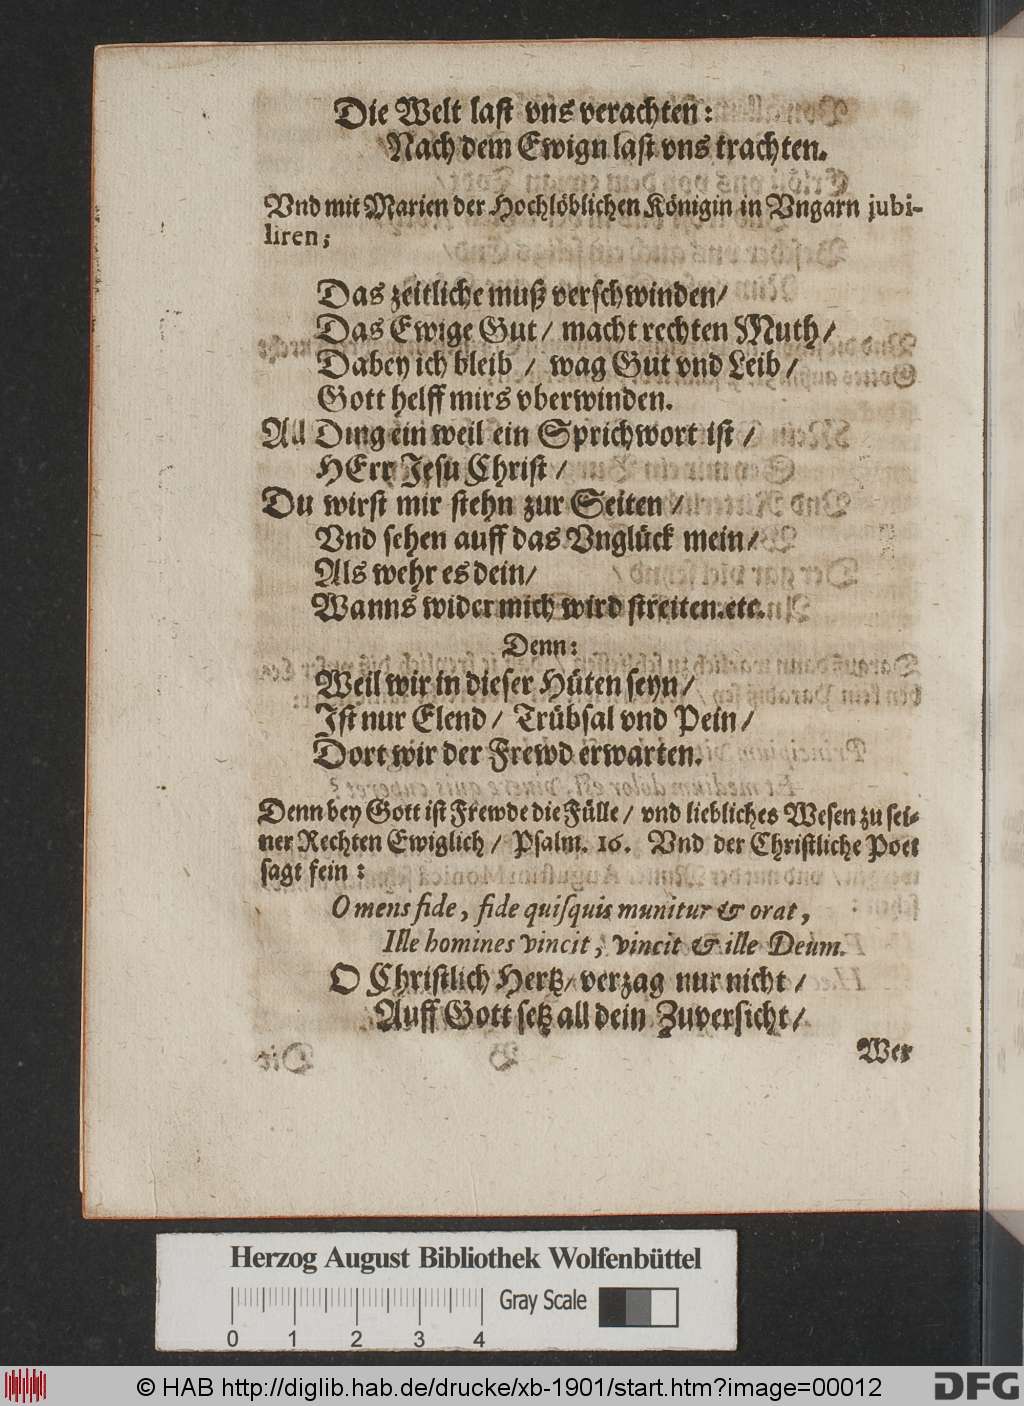 Die Welt last vns verachten:
Nach dem Ewign last vns trachten.
Vnd mit Marien der Hochlöblichen Königin in Vngarn jubi-
liren;
Das zeitliche muß verschwinden/
Das Ewige Gut/ macht rechten Muth/
Dabey ich bleib / wag Gut vnd Leib/
Gott helff mirs vberwinden.
All Ding ein weil ein Sprichwort ist /
HErr Jesu Christ /
Du wirst mir stehn zur Seiten /
Vnd sehen auff das Vnglück mein/
Als wehr es dein/
Wanns wider mich wird streiten.etc.
Denn:
Weil wir in dieser Hüten seyn/
Ist nur Elend/ Trübsal vnd Pein/
Dort wir der Frewd erwarten.
Denn bey Gott ist Frewde die Fülle/ vnd liebliches Wesen zu sei-
ner Rechten Ewiglich/ Psalm. 16. Vnd der Christliche Poet
sagt fein:
O mens fide, fide quiſquis munitur & orat,
Ille homines vincit, vincit & ille Deum.
O Christlich Hertz/ verzag nur nicht /
Auff Gott setz all dein Zuversicht/
Wer
Herzog August Bibliothek Wolfenbüttel
0 1 2 3 4 Gray Scale
© HAB http://diglib.hab.de/drucke/xb-1901/start.htm?image=00012
DFG